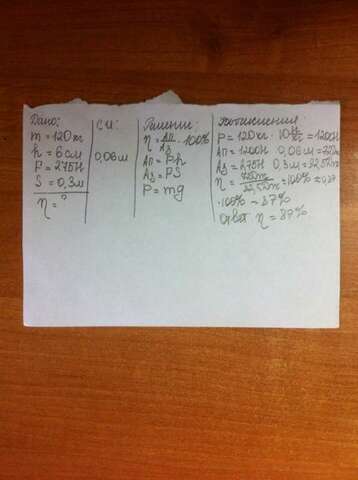 Дано:
m = 120 кг
h = 6 см
F = 275 Н
S = 0,3 м
η = ?
СИ:
0,06 м
Решение:
η = Ап/Аз · 100%
Ап = Ph
Аз = FS
P = mg
P = 120 кг · 10 Н/кг = 1200 Н
Ап = 1200 Н 0,06 м = 72 Дж
Аз = 275 Н 0,3 м = 82,5 Дж
η = 72 Дж/82,5 Дж = 100% = 0,87
·100% = 87%
Ответ η = 87%